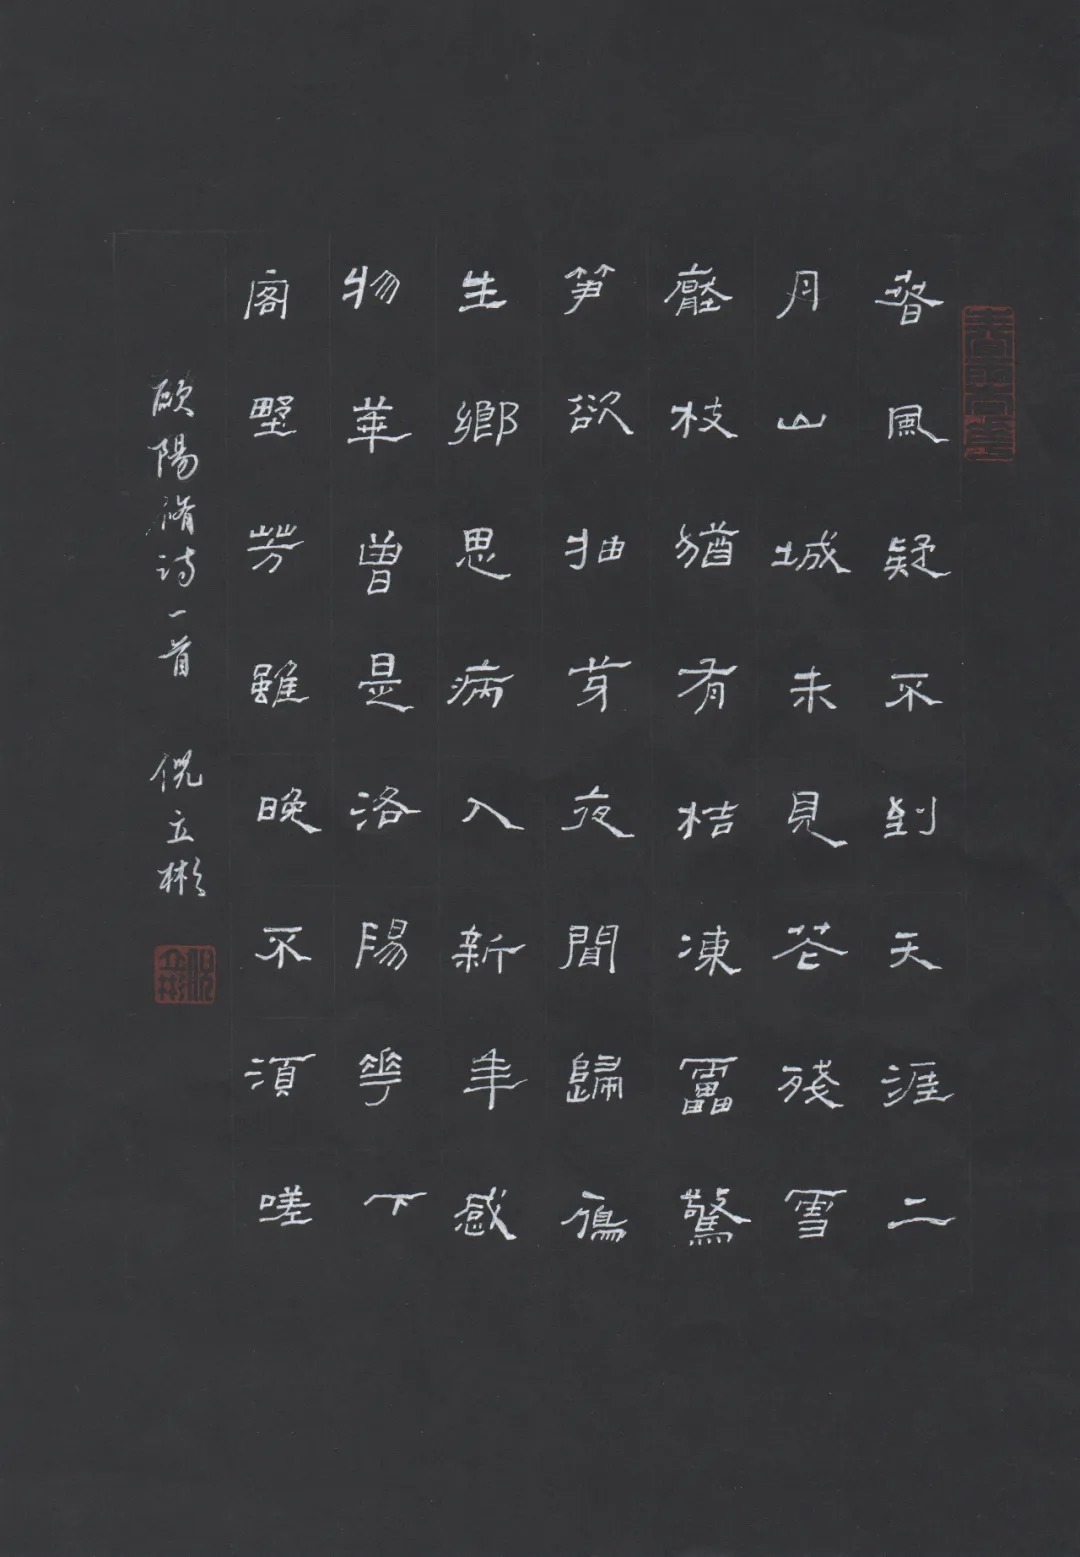 春風疑不到天涯二
月山城未見花殘雪
壓枝猶有桔凍靁驚
笋欲抽芽夜間歸鴈
生鄉思病入新年感
物華曾是洛陽花下
客野芳雖晚不須嗟
歐陽脩詩一首 倪立彬
倪立彬